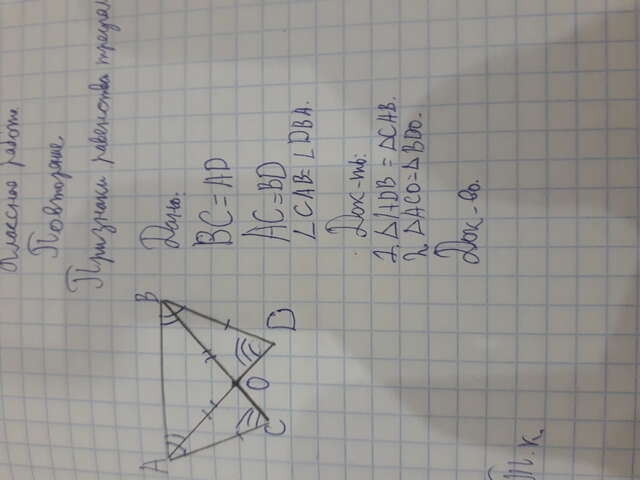 Классная работа
Повторение.
Признаки равенства
Дано:
BC = AD
AC = BD
∠CAB = ∠DBA.
Док-ть:
1. △ADB = △CAB.
2. △ACO = △BDO.
Док-во.
Т. к.
A
B
C
O
D